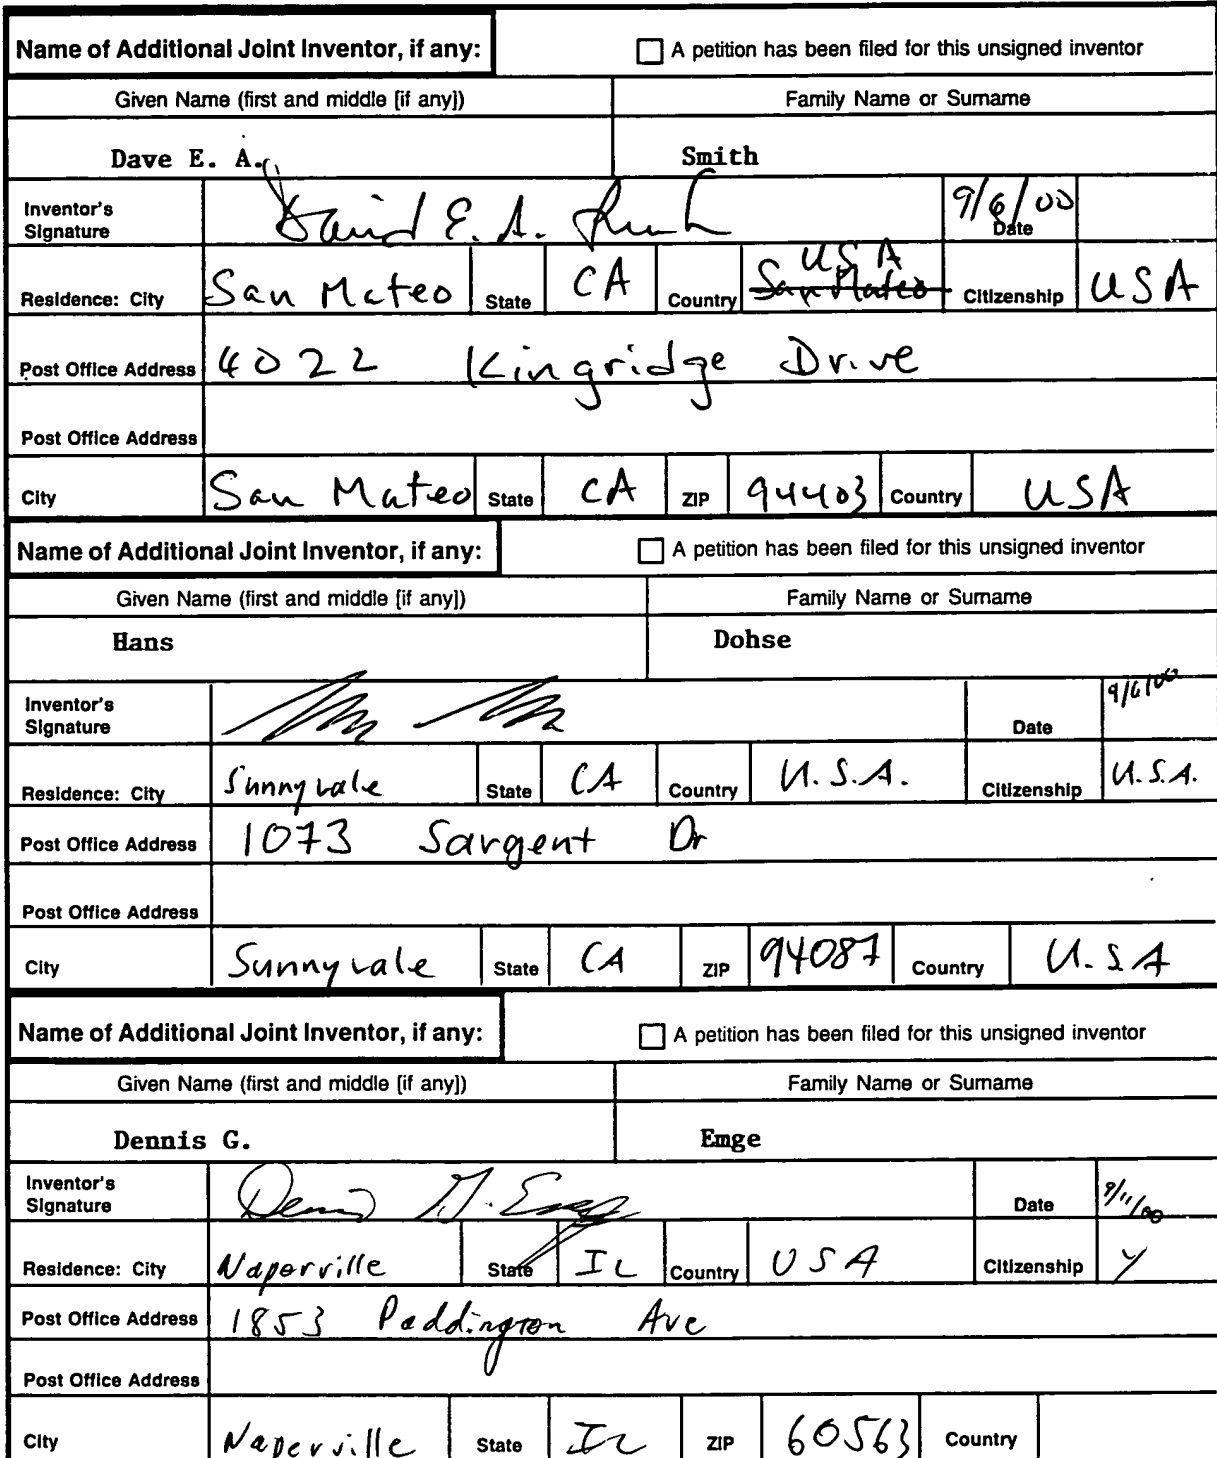 Name of Additional Joint Inventor, if any: A petition has been filed for this unsigned inventor
Given Name (first and middle [if any]) Family Name or Surname
Dave E. A. Smith
Inventor's Signature David E. A. Smith 9/6/00 Date
USA
Residence: City San Mateo State CA Country San Mateo Citizenship USA
Post Office Address 4022 Kingridge Drive
Post Office Address
City San Mateo State CA ZIP 94403 Country USA
Name of Additional Joint Inventor, if any: A petition has been filed for this unsigned inventor
Given Name (first and middle [if any]) Family Name or Surname
Hans Dohse
Inventor's Signature Date 9/6/00
Residence: City Sunnyvale State CA Country U.S.A. Citizenship U.S.A.
Post Office Address 1073 Sargent Dr
Post Office Address
City Sunnyvale State CA ZIP 94087 Country U.S.A
Name of Additional Joint Inventor, if any: A petition has been filed for this unsigned inventor
Given Name (first and middle [if any]) Family Name or Surname
Dennis G. Emge
Inventor's Signature Dennis G. Emge Date 9/11/00
Residence: City Naperville State IL Country USA Citizenship Y
Post Office Address 1853 Paddington Ave
Post Office Address
City Naperville State IL ZIP 60563 Country